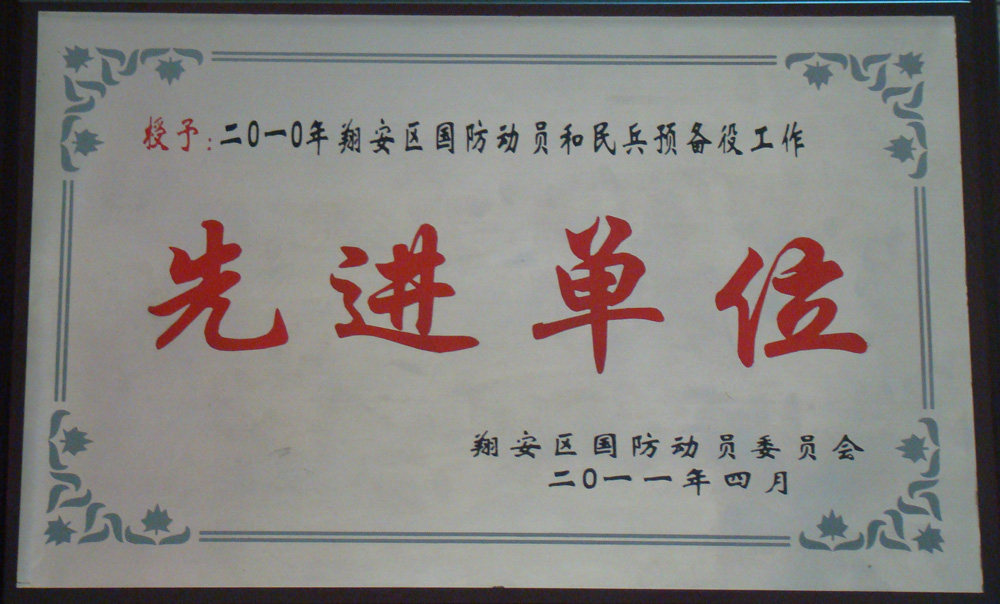 授予:二〇一〇年翔安区国防动员和民兵预备役工作
先进单位
翔安区国防动员委员会
二〇一一年四月